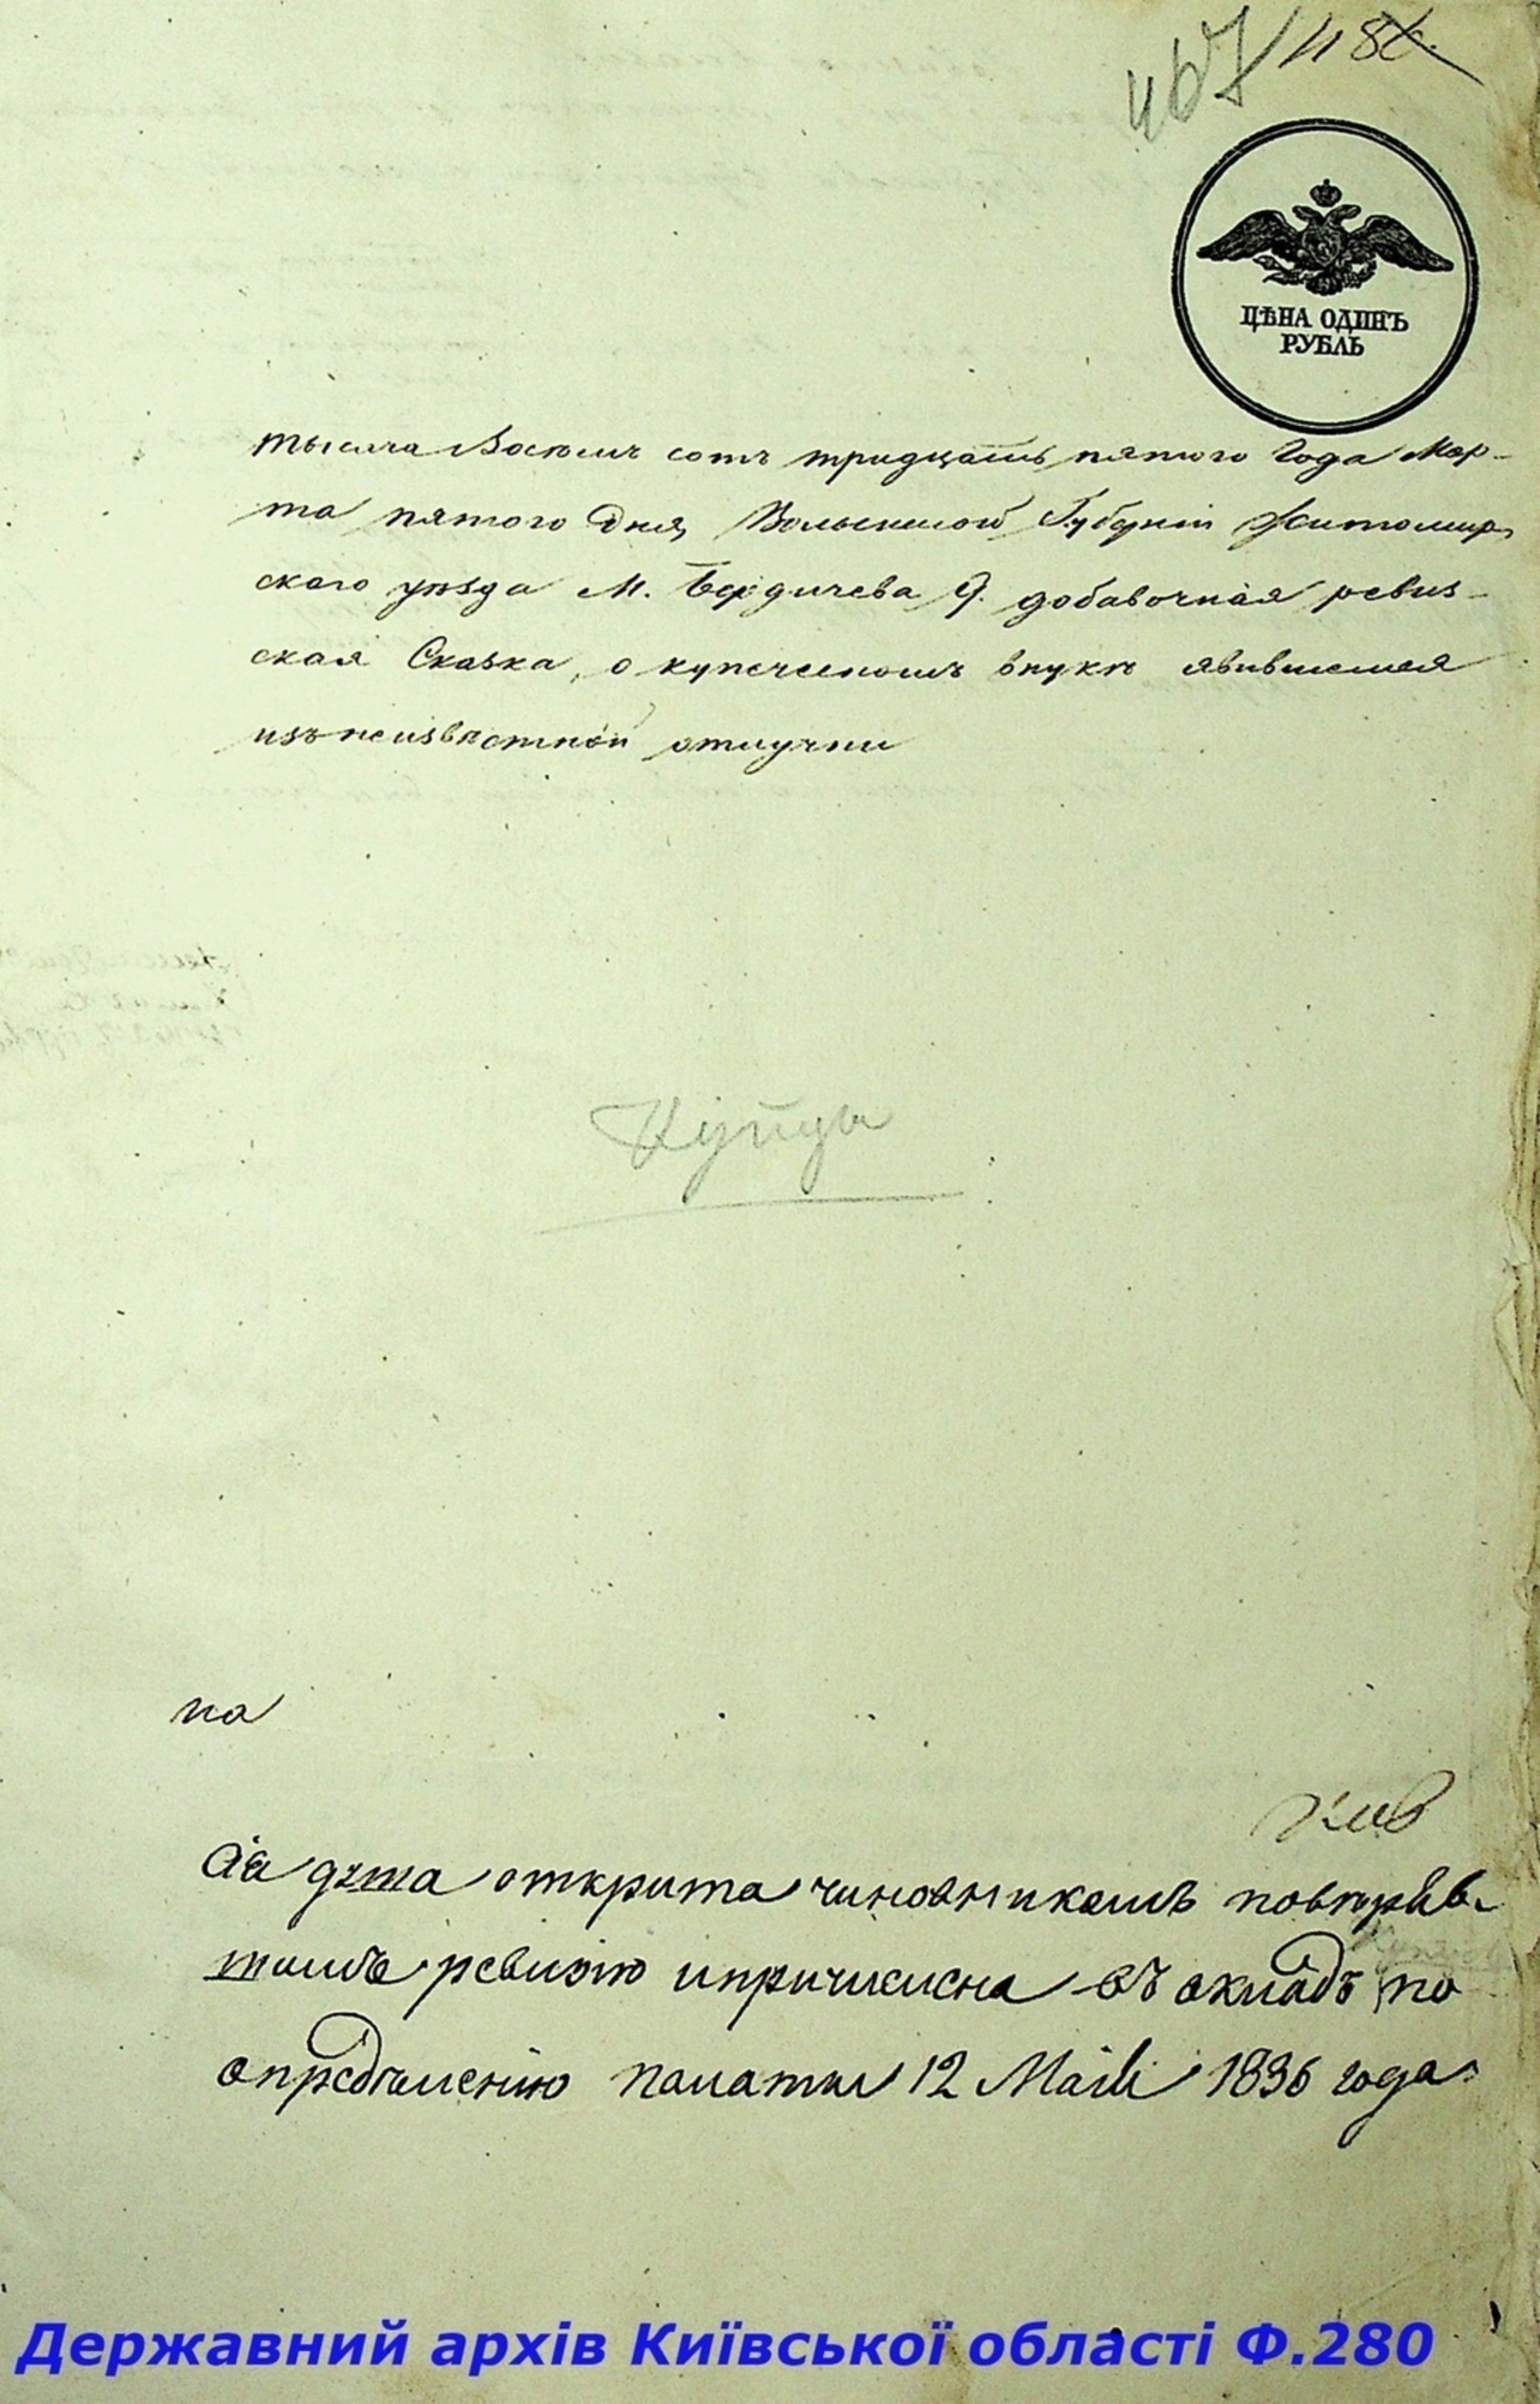 467 486
ЦѢНА ОДИНЪ
РУБЛЬ
тысяча Восемь сотъ тридцать пятого Года Мар-
та пятого Дня, Волынской Губерніи Житомир
ского уѣзда М. Бердичева 9. добавочная ревиз-
ская Сказка, о купеческомъ внукѣ явившемся
изъ неизвѣстной отлучки
на
душа открита чиновникомъ повѣряв-
шимъ ревизію и причислена въ окладъ по
опредѣленію палаты 12 Маія 1836 года.
Державний архів Київської області Ф.280